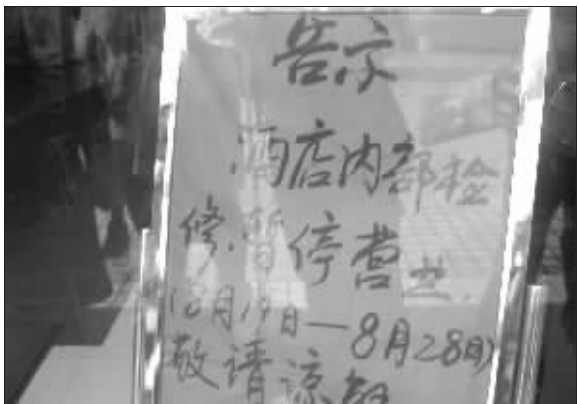 告示
酒店内部检
修.暂停营业.
(8月19日—8月28日)
敬请谅解